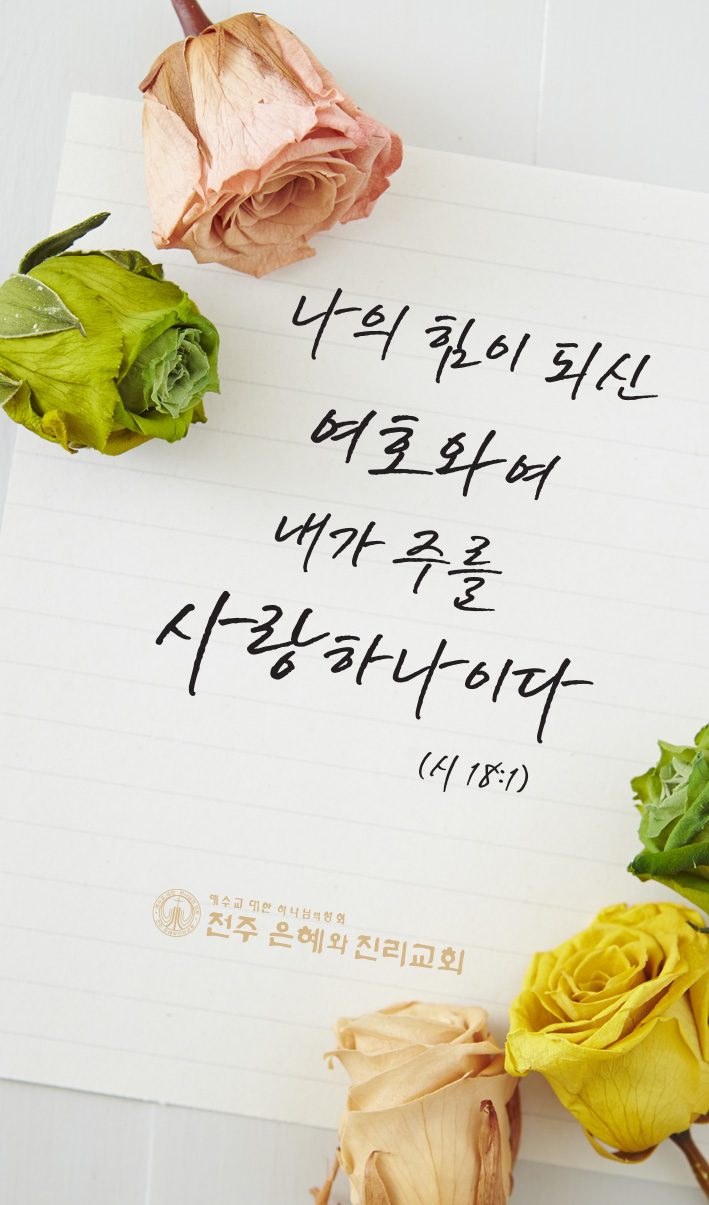 나의 힘이 되신
여호와여
내가 주를
사랑하나이다
(시 18:1)
예수교 대한 하나님의성회
전주 은혜와 진리교회